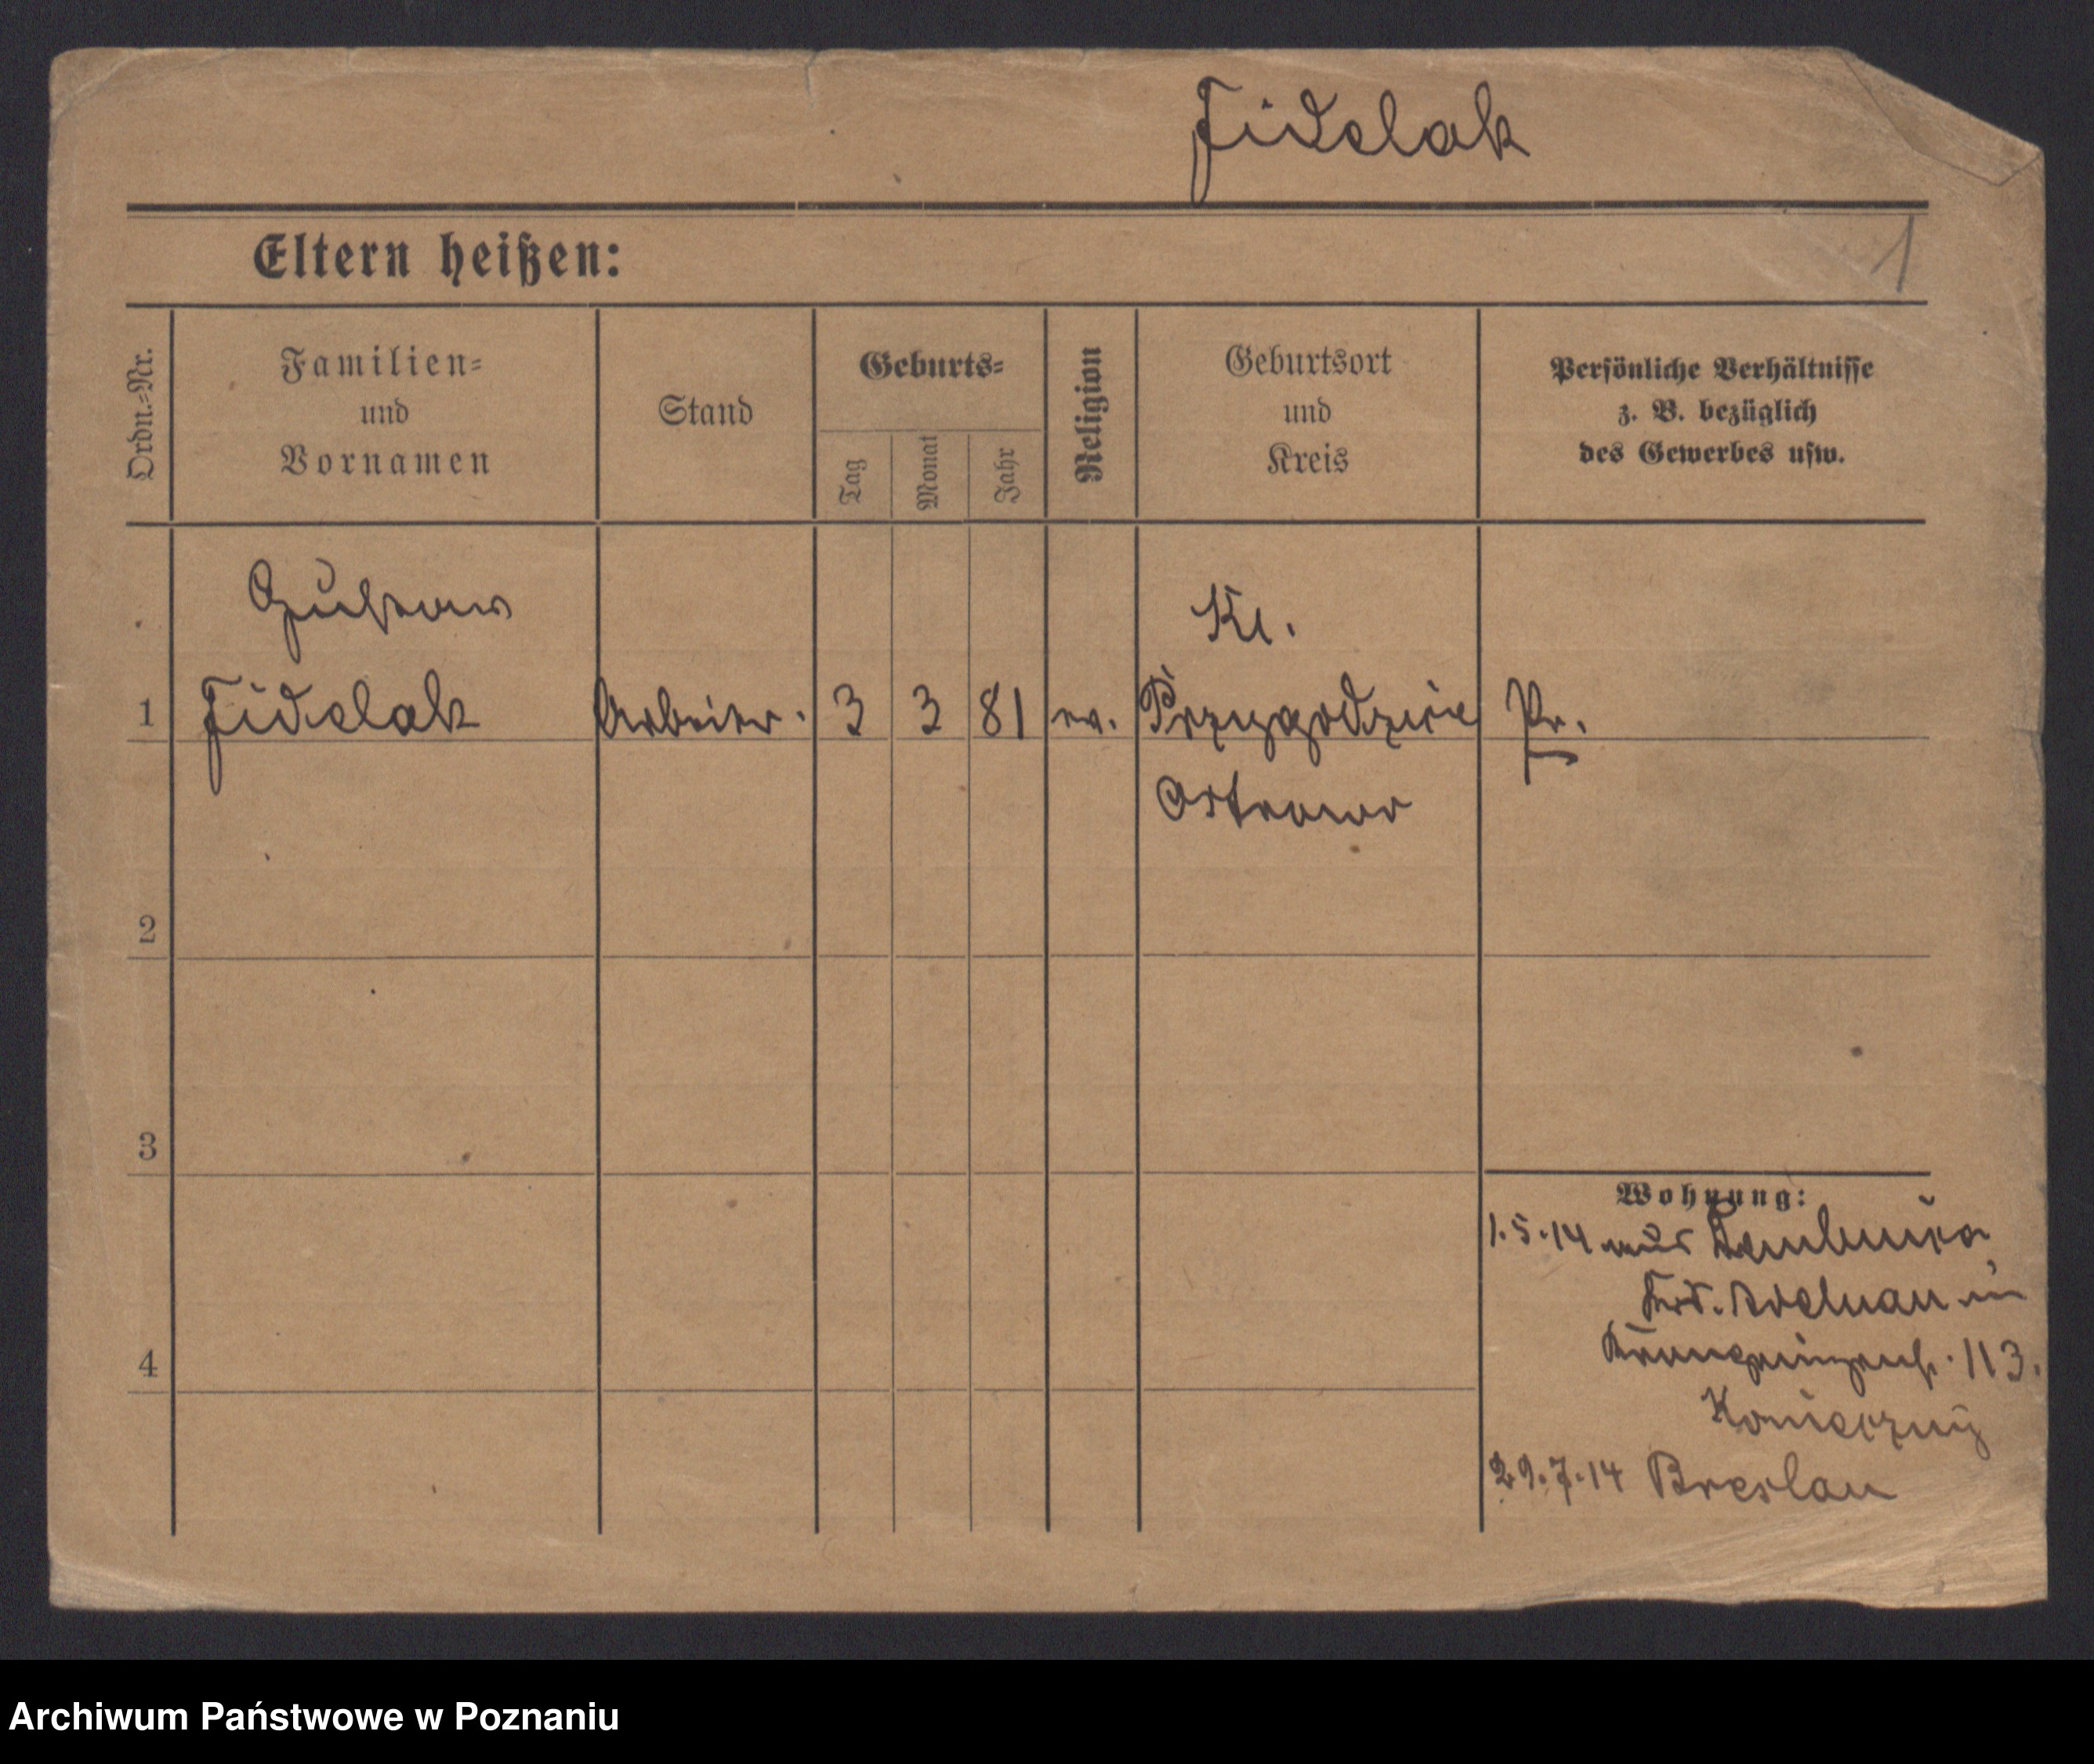 Fidelak
Eltern heißen:
1
Ordn.-Nr.
Familien=
und
Vornamen
Stand
Geburts=
Tag
Monat
Jahr
Religion
Geburtsort
und
Kreis
Persönliche Verhältnisse
z. B. bezüglich
des Gewerbes usw.
Gustav
Kl.
1 Fidelak Arbeiter. 3 3 81 ev. Przygodzice Pr.
Ostrowo
2
3
Wohnung:
1.5.14 aus
Adelnau in
4
Kronprinzenstr. 113.
29.7.14 Breslau
Archiwum Państwowe w Poznaniu